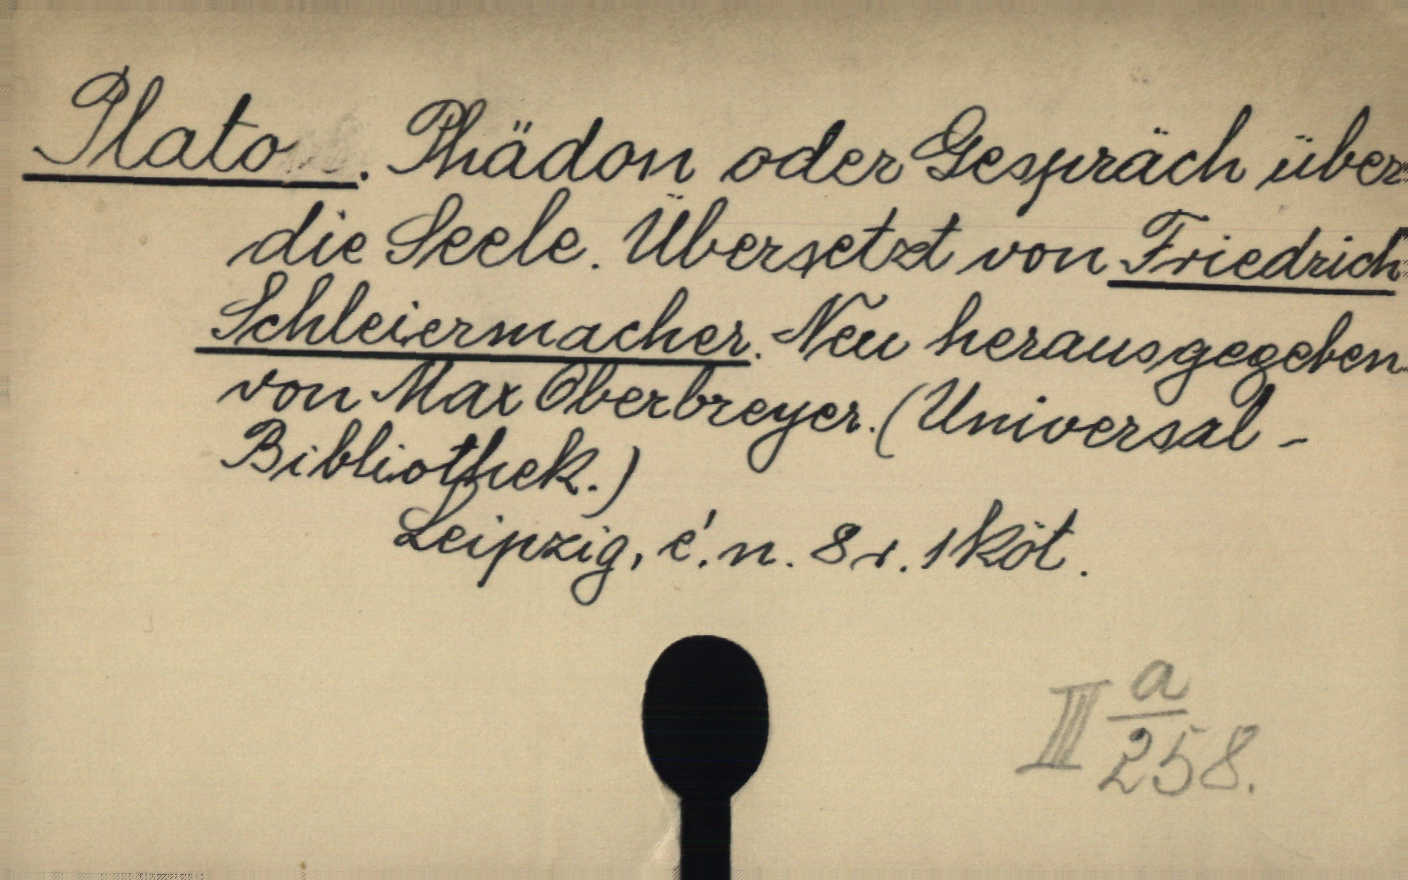 Plato. Phädon oder Gespräch über
die Seele. Übersetzt von Friedrich
Schleiermacher. Neu herausgegeben
von Max Oberbreyer. (Universal-
Bibliothek.)
Leipzig, é. n. 8 r. 1 köt.
III a/258.